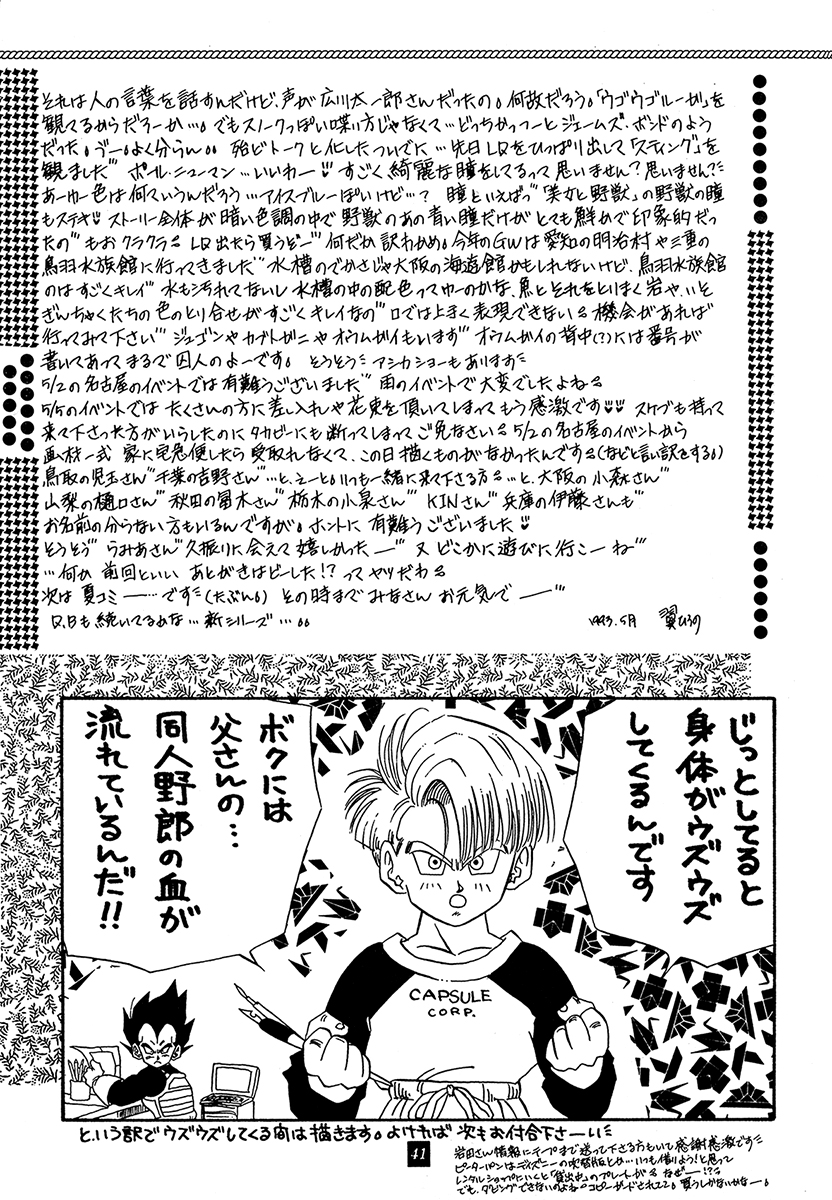 それは人の言葉を話すんだけど、声が広川太一郎さんだったの。何故だろう。「ウゴウゴルーガ」を
観てるからだろーか…。でもスノークっぽい喋り方じゃなくて…どっちかっつーとジェームズ・ボンドのよう
だった。うー。よく分らん。殆どトークと化したついでに…先日LDをひっぱり出して「スティング」を
観ました ポール・ニューマン…いいわー♡すごく綺麗な瞳をしてるって思いません?思いません?
あーゆー色は何ていうんだろう…アイスブルーぽいけど…? 瞳といえばっ「美女と野獣」の野獣の瞳
もステキ♡ストーリー全体が暗い色調の中で野獣のあの青い瞳だけがとても鮮やで印象的だっ
たの もおクラクラ LD出たら買うぞー 何だか訳わかめ。今年のGWは愛知の明治村や三重の
鳥羽水族館に行ってきました 水槽のでかさじゃ大阪の海遊館かもしれないけど、鳥羽水族館
のはすごくキレイ 水も汚れてないし 水槽の中の配色ってゆーのかな、魚とそれをとりまく岩や、いそ
ぎんちゃくたちの色のとり合せがすごくキレイなの 口では上まく表現できない 機会があれば
行ってみて下さい ジュゴンやカブトガニやオウムガイもいます オウムガイの背中(?)には番号が
書いてあってまるで囚人のよーです。 そうそう アシカショーもあります
5/2の名古屋のイベントでは有難うございました 雨のイベントで大変でしたよね
5/5のイベントでは たくさんの方に差し入れや花束を頂いてしまってもう感激です♡♡ スケブも持って
来て下さった方がいらしたのにタカビーにも断ってしまってご免なさい 5/2の名古屋のイベントから
画材一式 家に宅急便したら受取れなくて、この日描くものがなかったんです(などと言い訳をする。)
鳥取の児玉さん 千葉の吉野さん …と、えーと。いつも一緒に来て下さる方 …と、大阪の小森さん
山梨の樋口さん 秋田の冨木さん 栃木の小泉さん KINさん 兵庫の伊藤さんも
お名前の分らない方もいるんですが。ホントに 有難うございました♡
そうそう らみあさん 久振りに会えて嬉しかったー 又 どこかに遊びに行こーね
…何か 前回といい あとがきはどーした!? ってヤツだわ
次は 夏コミー……です (たぶん。) その時まで みなさん お元気で ー
D.Bも続いてるしな…新シリーズ…。。 1993.5月 翼ひろの
じっとしてると
身体がウズウズ
してくるんです
ボクには
父さんの…
同人野郎の血が
流れているんだ!!
CAPSULE
CORP.
と、いう訳でウズウズしてくる間は描きます。よければ 次もお付合下さーい
41
岩田さん情報にテープまで送って下さる方もいて感謝感激です
ピーターパンはディズニーの吹替版とか…いつも借りよう!と思って
レンタルショップにいくと「貸出中」のプレートが なぜー!?
でも、ダビングできないのよね コピーガードされてて。買うしかないかなー。